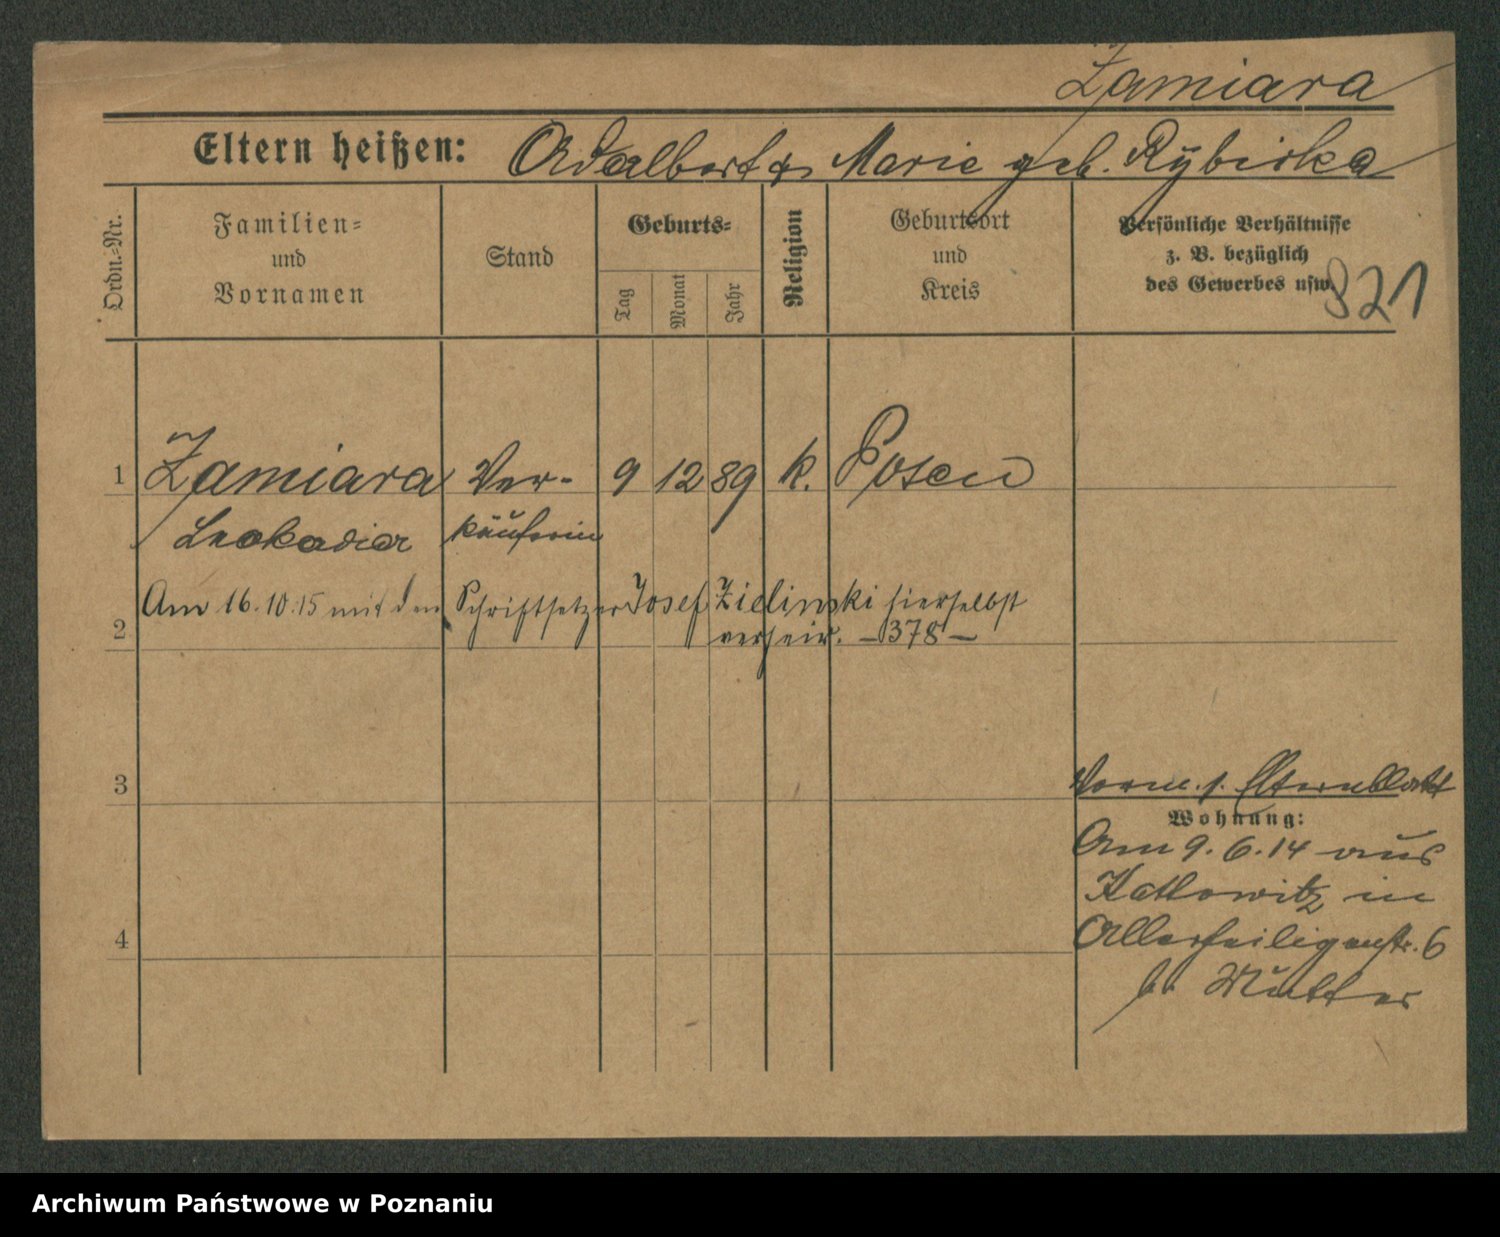 Zamiara
Eltern heißen: Adalbert & Marie geb. Rybicka
Ordn.-Nr.
Familien-
und
Vornamen
Stand
Geburts-
Tag
Monat
Jahr
Religion
Geburtsort
und
Kreis
Persönliche Verhältnisse
z. B. bezüglich
des Gewerbes usw.
821
1 Zamiara Ver- 9 12 89 k. Posen
Leokadia käuferin
Am 16.10.15 mit dem Schriftsetzer Josef Zielinski hierselbst
2 verheir. – 378 –
3
Vorm. s. Elternblatt
Wohnung:
Am 9.6.14 aus
Kattowitz in
4 Allerheiligenstr. 6
b. Mutter
Archiwum Państwowe w Poznaniu